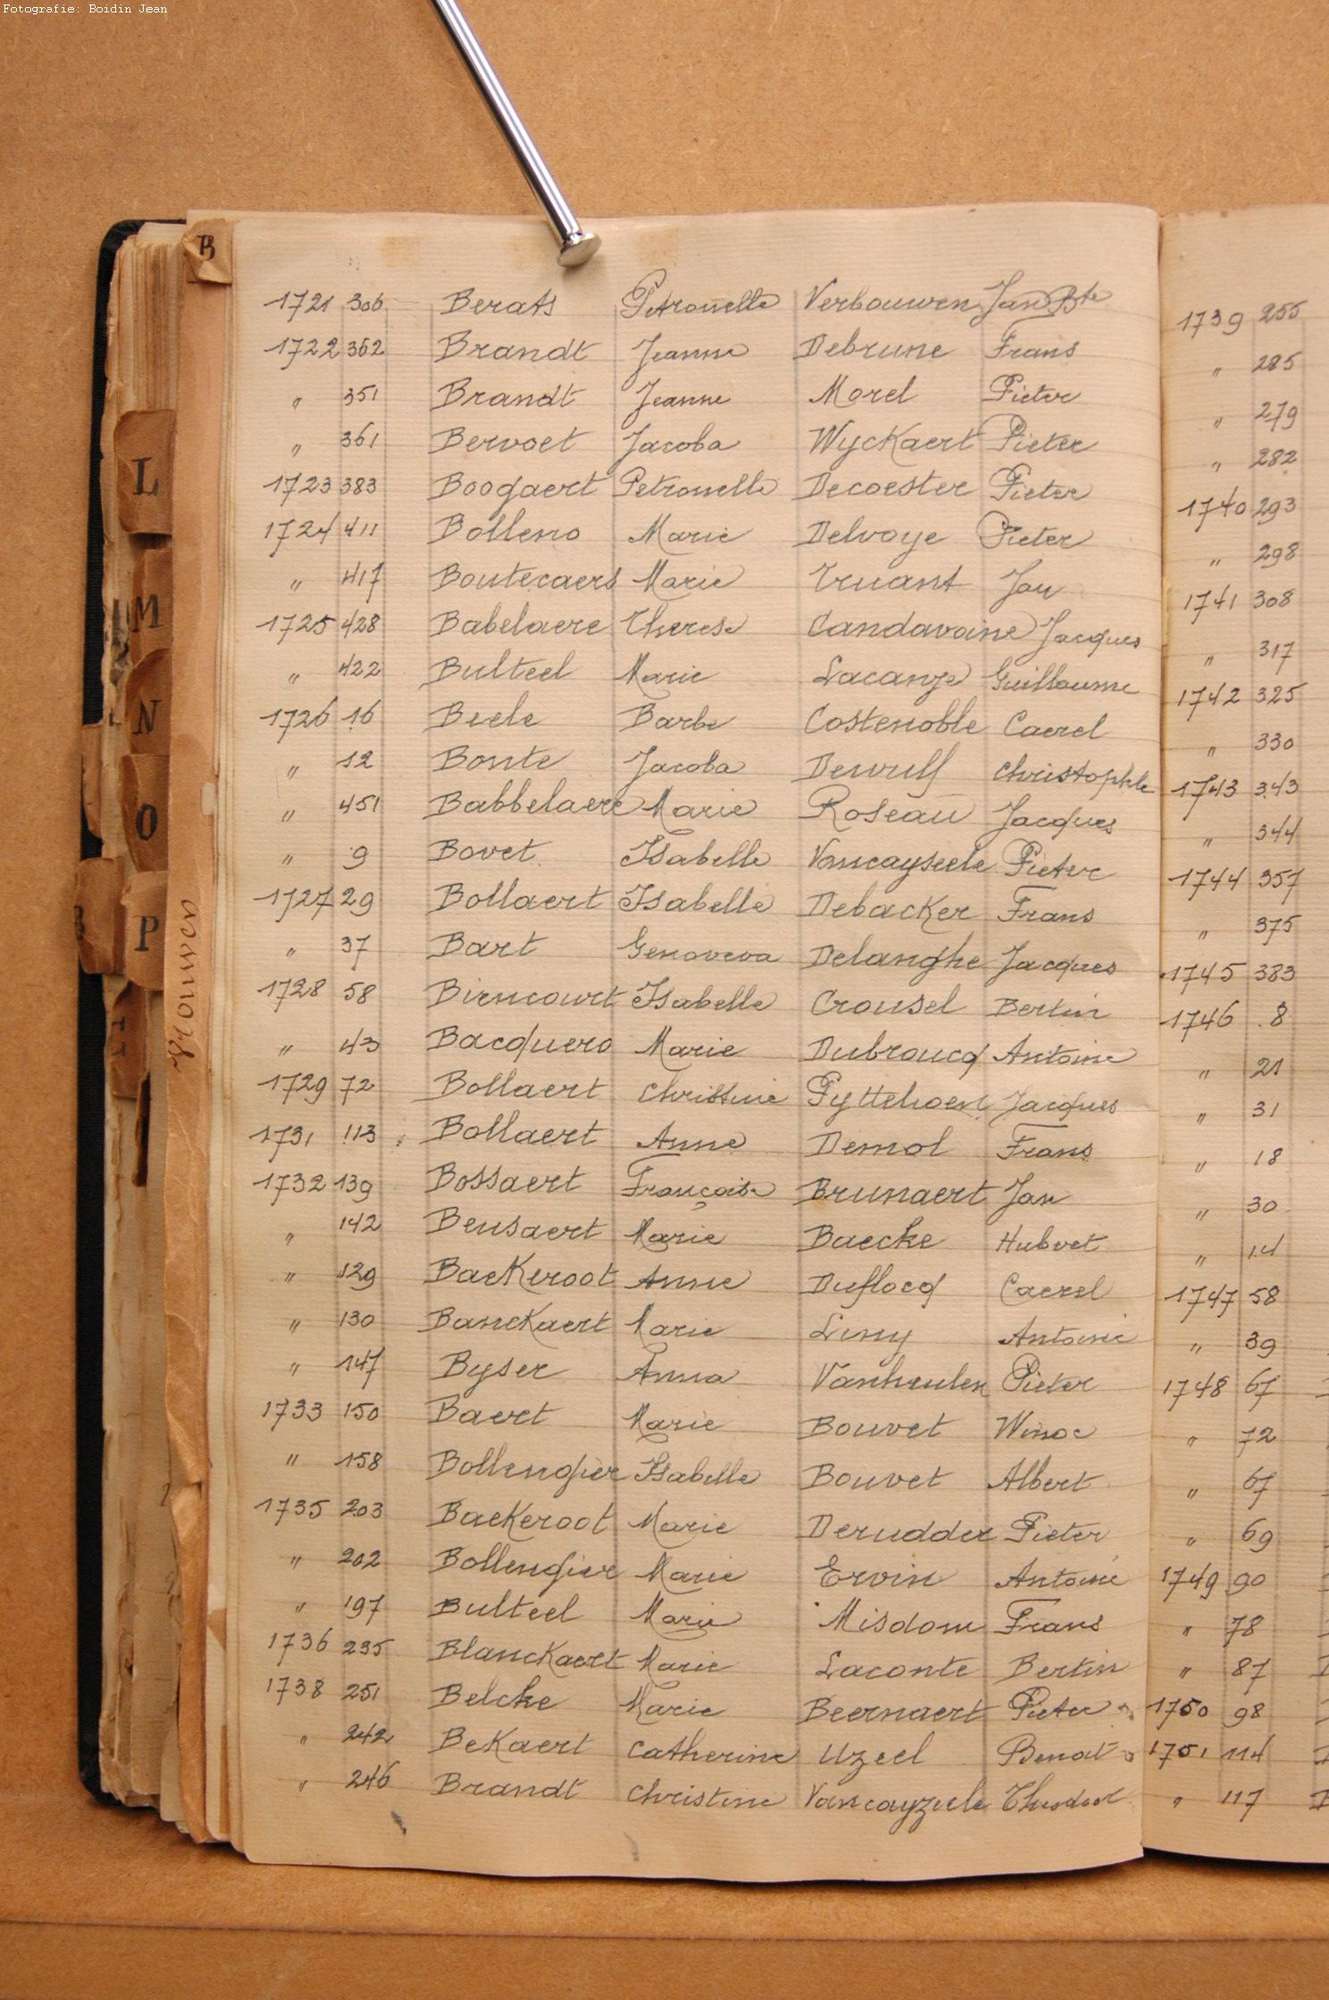 Fotografie: Boidin Jean
B
1721 306 Berats Petronelle Verbouwen Jan Bte
1722 362 Brandt Jeanne Debrune Frans
" 351 Brandt Jeanne Morel Pieter
" 361 Bervoet Jacoba Wyckaert Pieter
1723 383 Boogaert Petronelle Decoester Pieter
1724 411 Bolleno Marie Delvoye Pieter
" 417 Boutecaers Marie Truant Jan
1725 428 Babelaere Therese Candavoine Jacques
" 422 Bulteel Marie Guillaume
1726 16 Beele Barbe Costenoble Caerel
" 12 Bonte Jacoba Dewulf Christophle
" 451 Babbelaere Marie Roseau Jacques
" 9 Bovet Isabelle Vancayseele Pieter
1727 29 Bollaert Isabelle Debacker Frans
" 37 Bart Genoveva Delanghe Jacques
1728 58 Biencourt Isabelle Crousel Bertin
" 43 Bacquero Marie Dubroucq Antoine
1729 72 Bollaert Christine Pyttehoen Jacques
1731 113 Bollaert Anne Demol Frans
1732 139 Bossaert Françoise Brunaert Jan
" 142 Beusaert Marie Baecke Hubert
" 129 Baekeroot Anne Duflocq Caerel
" 130 Banckaert Marie Liny Antoine
" 147 Byser Anna Vanheulen Pieter
1733 150 Baert Marie Bouvet Winoc
" 158 Bollengier Isabelle Bouvet Albert
1735 203 Baekeroot Marie Derudder Pieter
" 202 Bollengier Marie Ervin Antoine
" 197 Bulteel Marie Misdom Frans
1736 235 Blanckaert Marie Laconte Bertin
1738 251 Belcke Marie Beernaert Pieter
" 242 Bekaert Catherine Uzeel Benoit
" 246 Brandt Christine Vancayzeele Theodoor
1739 255
" 285
" 279
" 282
1740 293
" 298
1741 308
" 317
1742 325
" 330
1743 343
" 344
1744 357
" 375
1745 383
1746 8
" 21
" 31
" 18
" 30
" 14
1747 58
" 39
1748 67
" 72
" 67
" 69
1749 90
" 78
" 87
1750 98
1751 114
" 117
Vrouwen
L
M
N
O
P